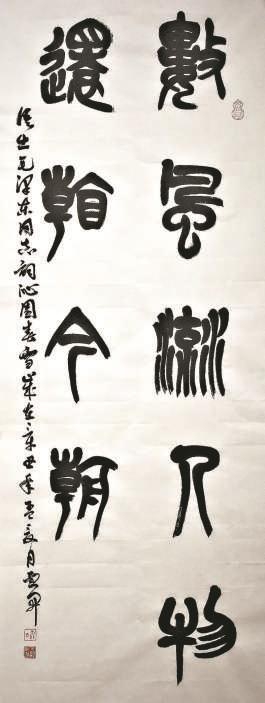 數風流人物
還看今朝
毛澤東同志詞沁園春雪歲在辛丑年夏月